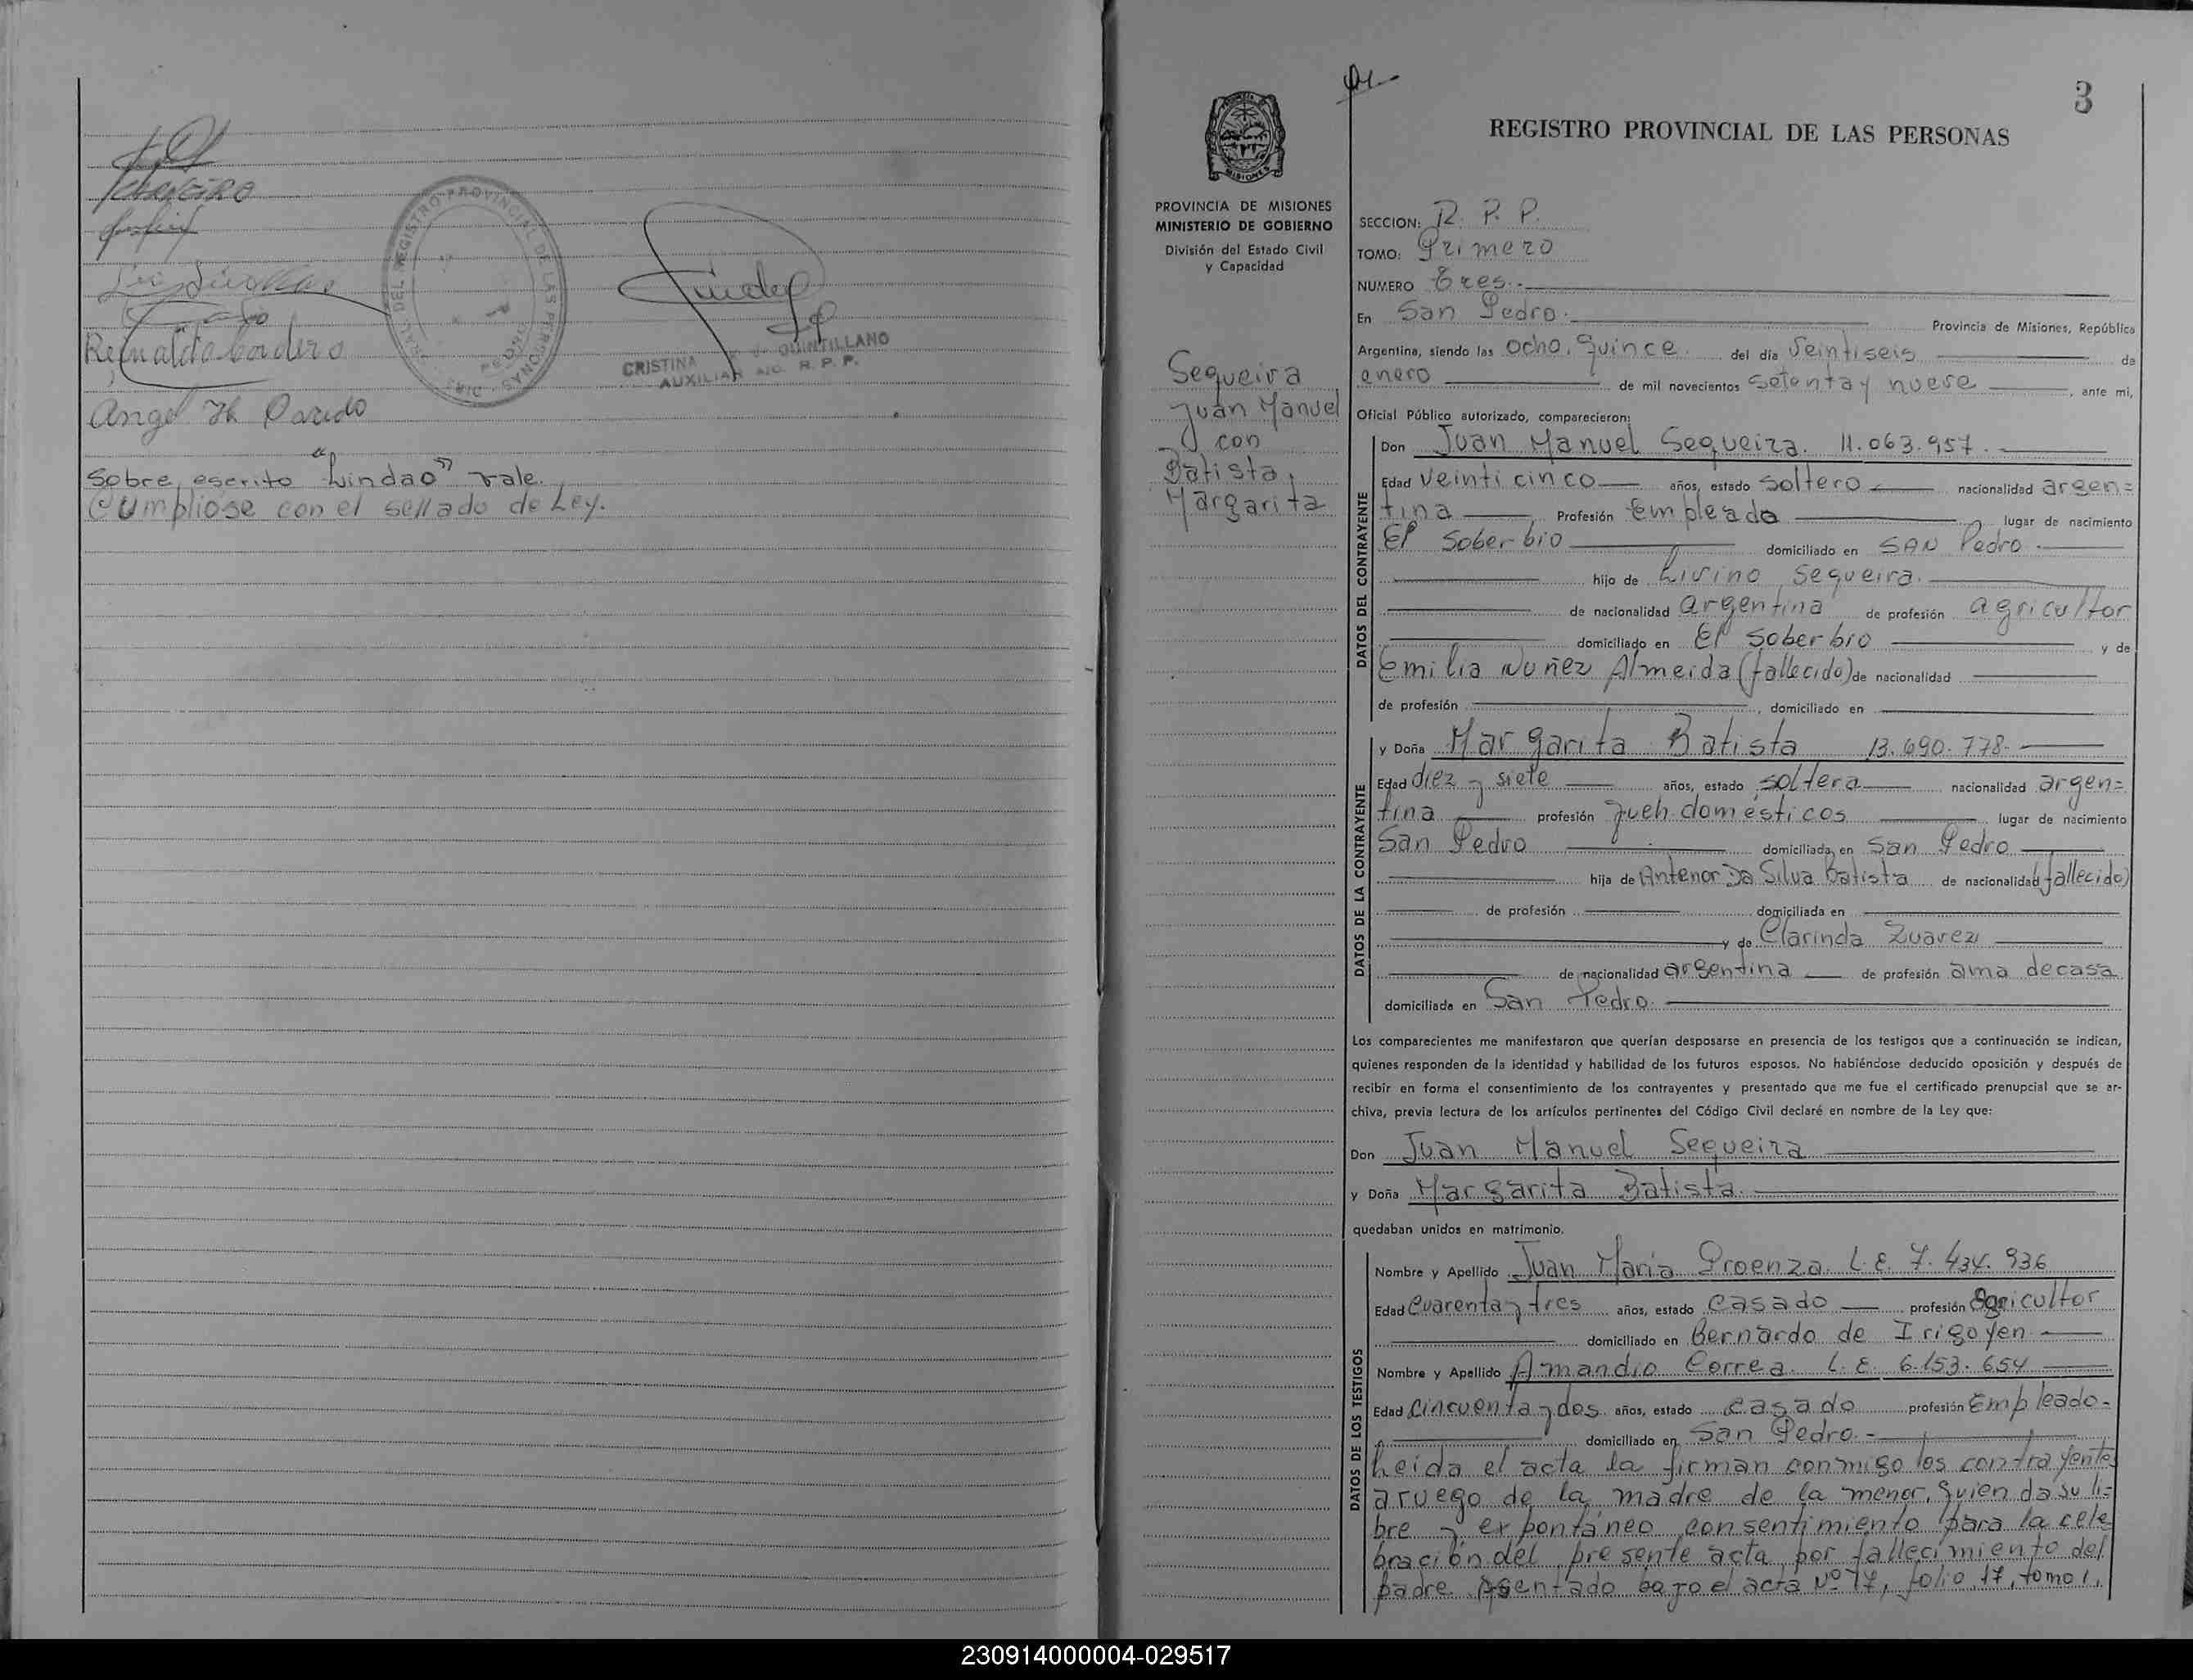 Reinaldo Cordero
Angel H. Pardo
Sobre escrito "Lindao" vale.
Cumpliose con el sellado de Ley.
REGISTRO PROVINCIAL DE LAS PERSONAS
CRISTINA QUINTILLANO
AUXILIAR R. P. P.
3
REGISTRO PROVINCIAL DE LAS PERSONAS
MISIONES
PROVINCIA DE MISIONES
MINISTERIO DE GOBIERNO
División del Estado Civil
y Capacidad
Sequeira
Juan Manuel
con
Batista,
Margarita
SECCION: R. P. P.
TOMO: Primero
NUMERO Tres.-
En San Pedro. Provincia de Misiones, República
Argentina, siendo las ocho, quince del día Veintiseis de
enero de mil novecientos setenta y nueve, ante mi,
Oficial Público autorizado, comparecieron:
DATOS DEL CONTRAYENTE
Don Juan Manuel Sequeira. 11.063.957.
Edad Veinticinco años, estado soltero nacionalidad argen=
tina Profesión Empleado lugar de nacimiento
El Soberbio domiciliado en SAN Pedro.
hijo de Livino Sequeira.
de nacionalidad argentina de profesión agricultor
domiciliado en El Soberbio y de
Emilia Nuñez Almeida (fallecido) de nacionalidad
de profesión , domiciliado en
DATOS DE LA CONTRAYENTE
y Doña Margarita Batista 13.690.778.
Edad diez y siete años, estado soltera nacionalidad argen=
tina profesión queh domésticos lugar de nacimiento
San Pedro domiciliada en San Pedro
hija de Antenor Da Silva Batista de nacionalidad (fallecido)
de profesión domiciliada en
y de Clarinda Zuarez
de nacionalidad argentina de profesión ama de casa
domiciliada en San Pedro.
Los comparecientes me manifestaron que querían desposarse en presencia de los testigos que a continuación se indican,
quienes responden de la identidad y habilidad de los futuros esposos. No habiéndose deducido oposición y después de
recibir en forma el consentimiento de los contrayentes y presentado que me fue el certificado prenupcial que se ar-
chiva, previa lectura de los artículos pertinentes del Código Civil declaré en nombre de la Ley que:
Don Juan Manuel Sequeira
y Doña Margarita Batista.
quedaban unidos en matrimonio.
DATOS DE LOS TESTIGOS
Nombre y Apellido Juan Maria Proenza. L.E. 7.434.936
Edad Cuarenta y tres años, estado Casado profesión agricultor
domiciliado en Bernardo de Irigoyen
Nombre y Apellido Amandio Correa. L.E. 6.153.654
Edad Cincuenta y dos años, estado casado profesión Empleado-
domiciliado en San Pedro.-
Leida el acta la firman conmigo los contrayentes
a ruego de la madre de la menor, quien da su li=
bre y expontáneo consentimiento para la cele
bración del presente acta por fallecimiento del
padre asentado bajo el acta Nº 17, folio 17, tomo 1,
230914000004-029517